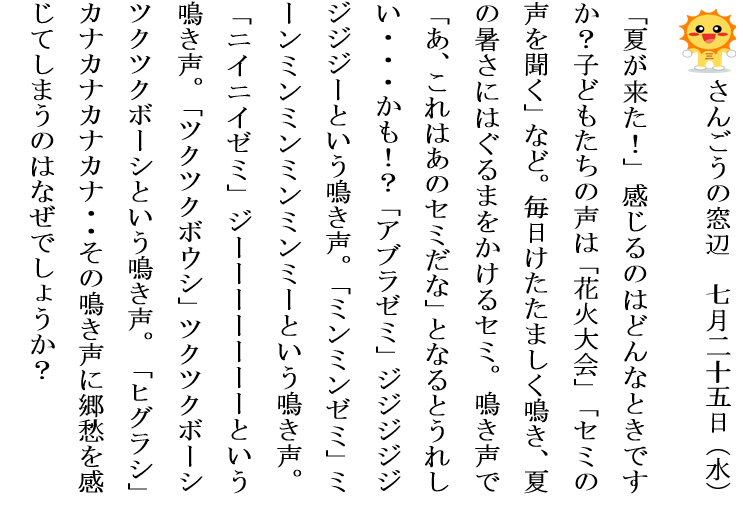 さんごうの窓辺　七月二十五日（水）
「夏が来た！」感じるのはどんなときです
か？子どもたちの声は「花火大会」「セミの
声を聞く」など。毎日けたたましく鳴き、夏
の暑さにはぐるまをかけるセミ。鳴き声で
「あ、これはあのセミだな」となるとうれし
い・・・かも！？「アブラゼミ」ジジジジジ
ジジジーという鳴き声。「ミンミンゼミ」ミ
ーンミンミンミンミンミーという鳴き声。
「ニイニイゼミ」ジーーーーーーーという
鳴き声。「ツクツクボウシ」ツクツクボーシ
ツクツクボーシという鳴き声。「ヒグラシ」
カナカナカナカナ・・その鳴き声に郷愁を感
じてしまうのはなぜでしょうか？